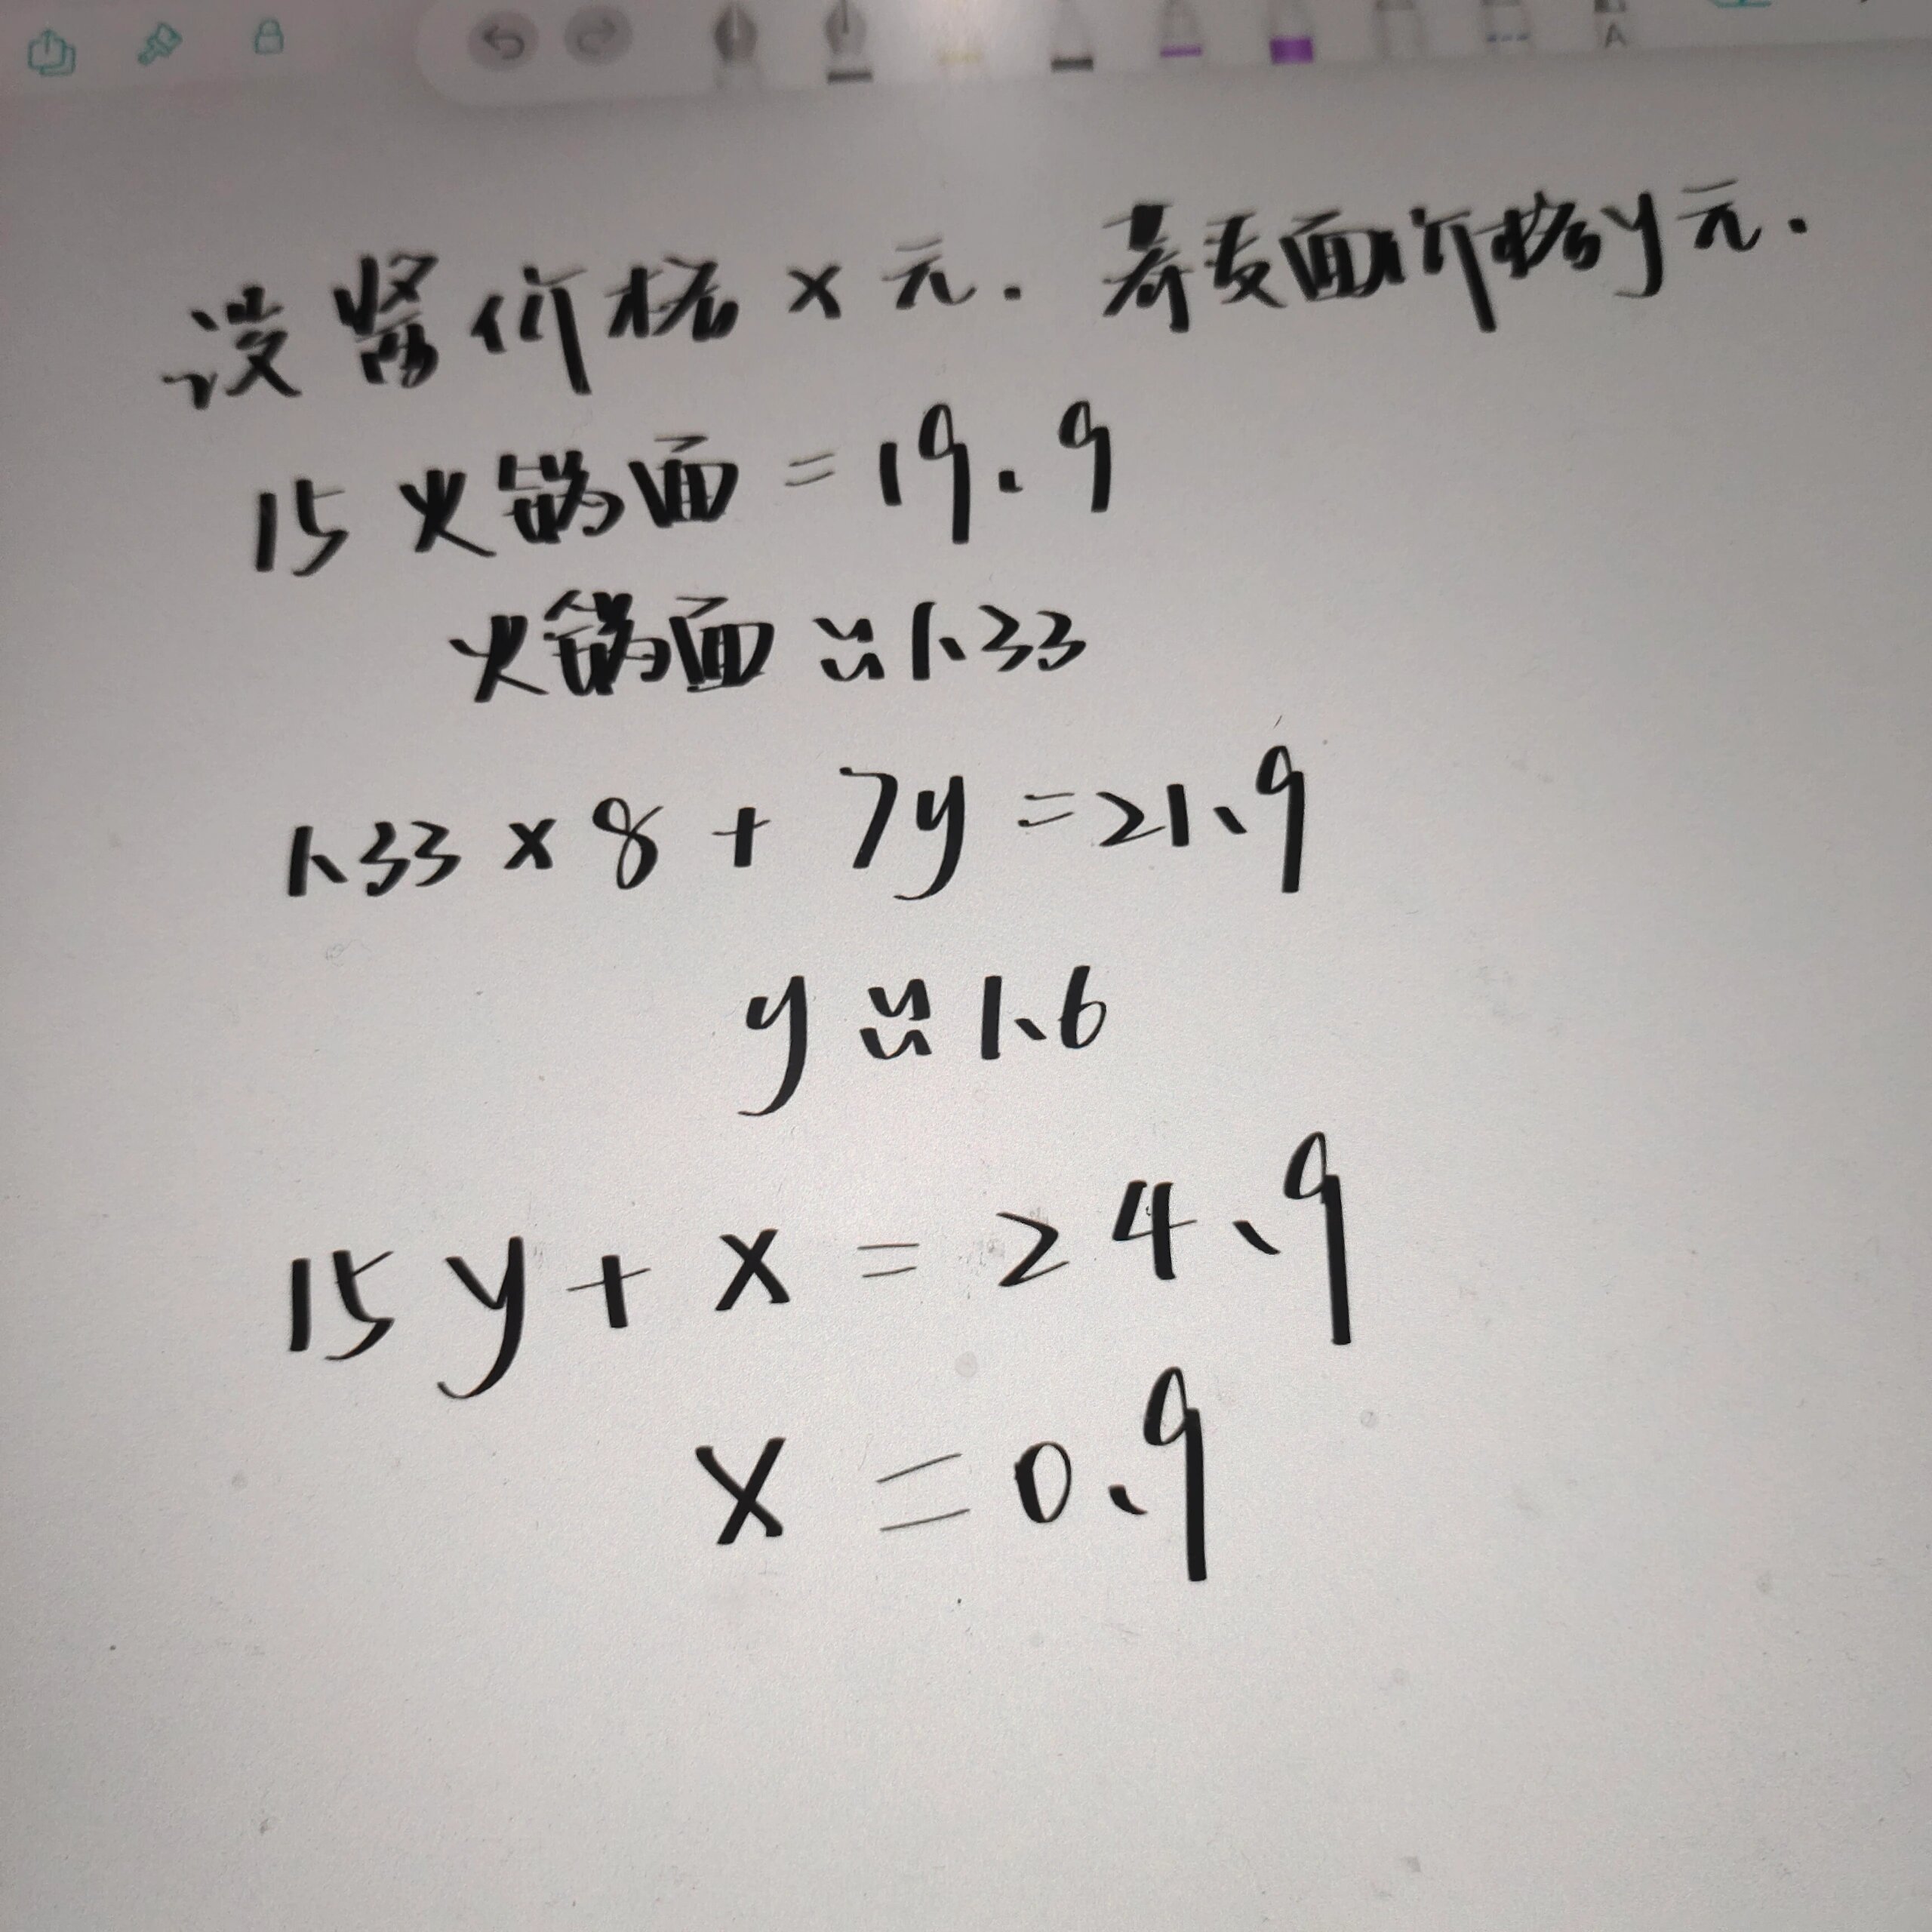 设酱价格x元. 荞麦面价格y元.
15火锅面=19.9
火锅面≈1.33
1.33×8+7y=21.9
y≈1.6
15y+x=24.9
x=0.9